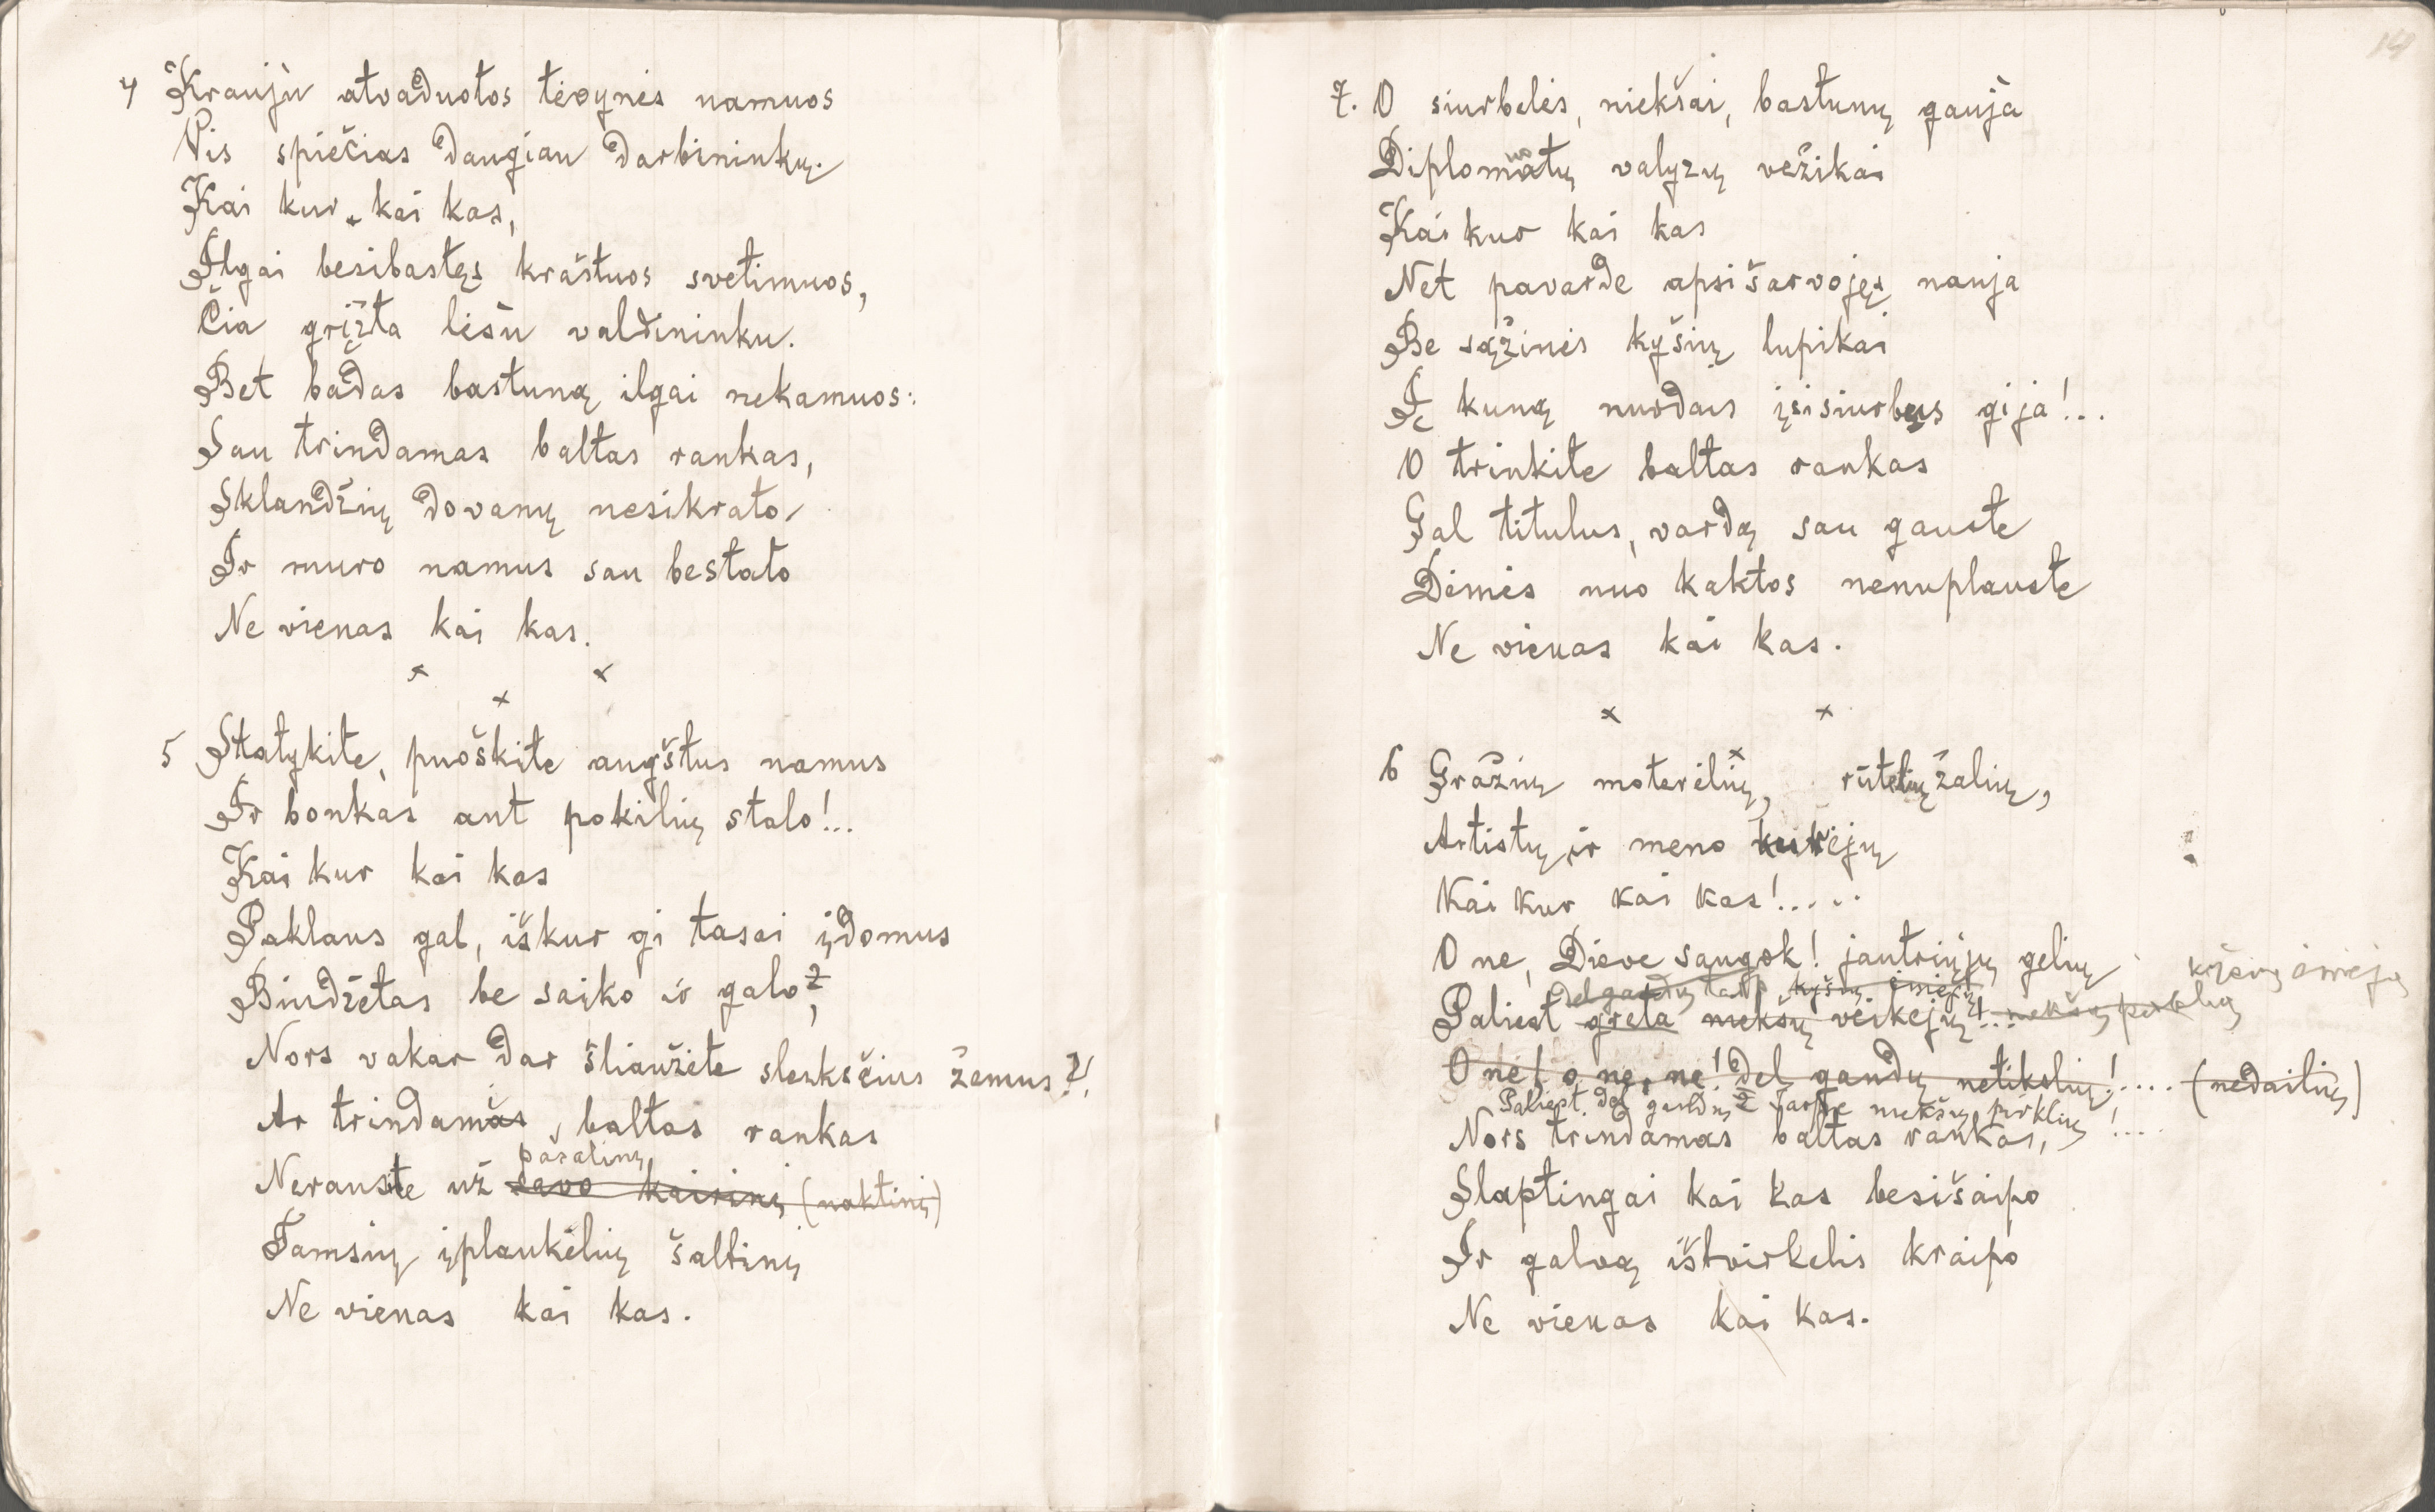 4 Krauju atvaduotos tėvynės namuos
Vis spiečias daugiau darbininkų.
Kai kur kai kas,
Ilgai besibastęs kraštuos svetimuos,
Čia grįžta lėšų valdininku.
Bet badas bastūną ilgai nekamuos:
Sau trindamas baltas rankas,
Sklandžių dovanų nesikrato
Ir muro namus sau bestato
Ne vienas kai kas.
x x
x
5 Statykite, puoškite augštus namus
Ir bonkas ant pokilių stalo!..
Kai kur kai kas
Paklaus gal, iškur gi tasai įdomus
Biudžetas be saiko ir galo?,
Nors vakar dar šliaužėte slenksčius žemus?!
Ar trindamas, baltas rankas
pašalinį
Nerauste už savo kairinį (naktinį)
Tamsių įplaukėlių šaltinį
Ne vienas kai kas.
14
7. O siurbėlės, niekšai, bastunų gauja
Diplomatų valyzų vežikai
Kai kur kai kas
Net pavarde apsišarvojęs nauja
Be sąžinės kyšių lupikai
Į kūną nuodais įsisiurbęs gija!...
O trinkite baltas rankas
Gal titulus, vardą sau gauste
Dėmės nuo kaktos nenuplauste
Ne vienas kai kas.
x x
x
6 Gražių moterėlių, rūtelių žalių,
Artistų ir meno kurėjų
Kai kur kai kas!.....
O ne, Dieve saugok! jautriųjų gėlių
dėl gandų tarp kyšių ėmėjų
Paliest greta niekšų veikėjų!... niekšų pirklių
O ne! o ne, ne! dėl gandų netikslių!.... (nedailių)
Paliest dėl gandų tarpe niekšų pirklių!...
Nors trindamas baltas rankas,
Slaptingai kai kas besišaipo
Ir galvą ištvirkėlis kraipo
Ne vienas kai kas.